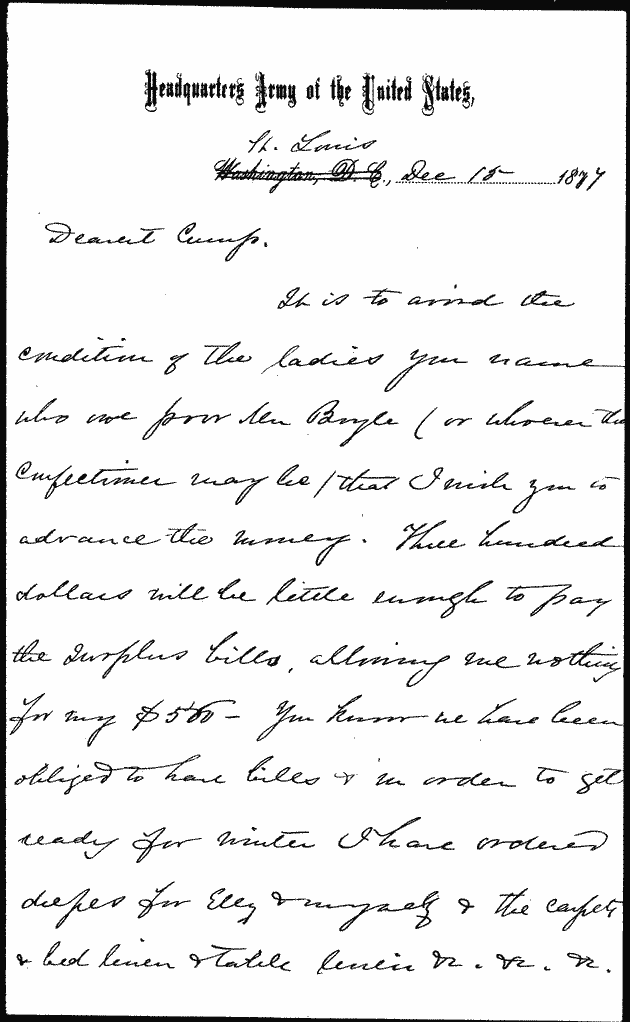 Headquarters Army of the United States,
St. Louis
Washington, D. C., Dec 15 1877
Dearest Cump.
It is to avoid the
condition of the ladies you name
who owe poor Boyle (or whoever the
confectioner may be) that I wish you to
advance the money. Three hundred
dollars will be little enough to pay
the surplus bills, allowing me nothing
for my $500 - You know we have been
obliged to have bills & in order to get
ready for winter I have ordered
for Elly & myself & the carpets
& bed linen & table linen &c. &c. &c.